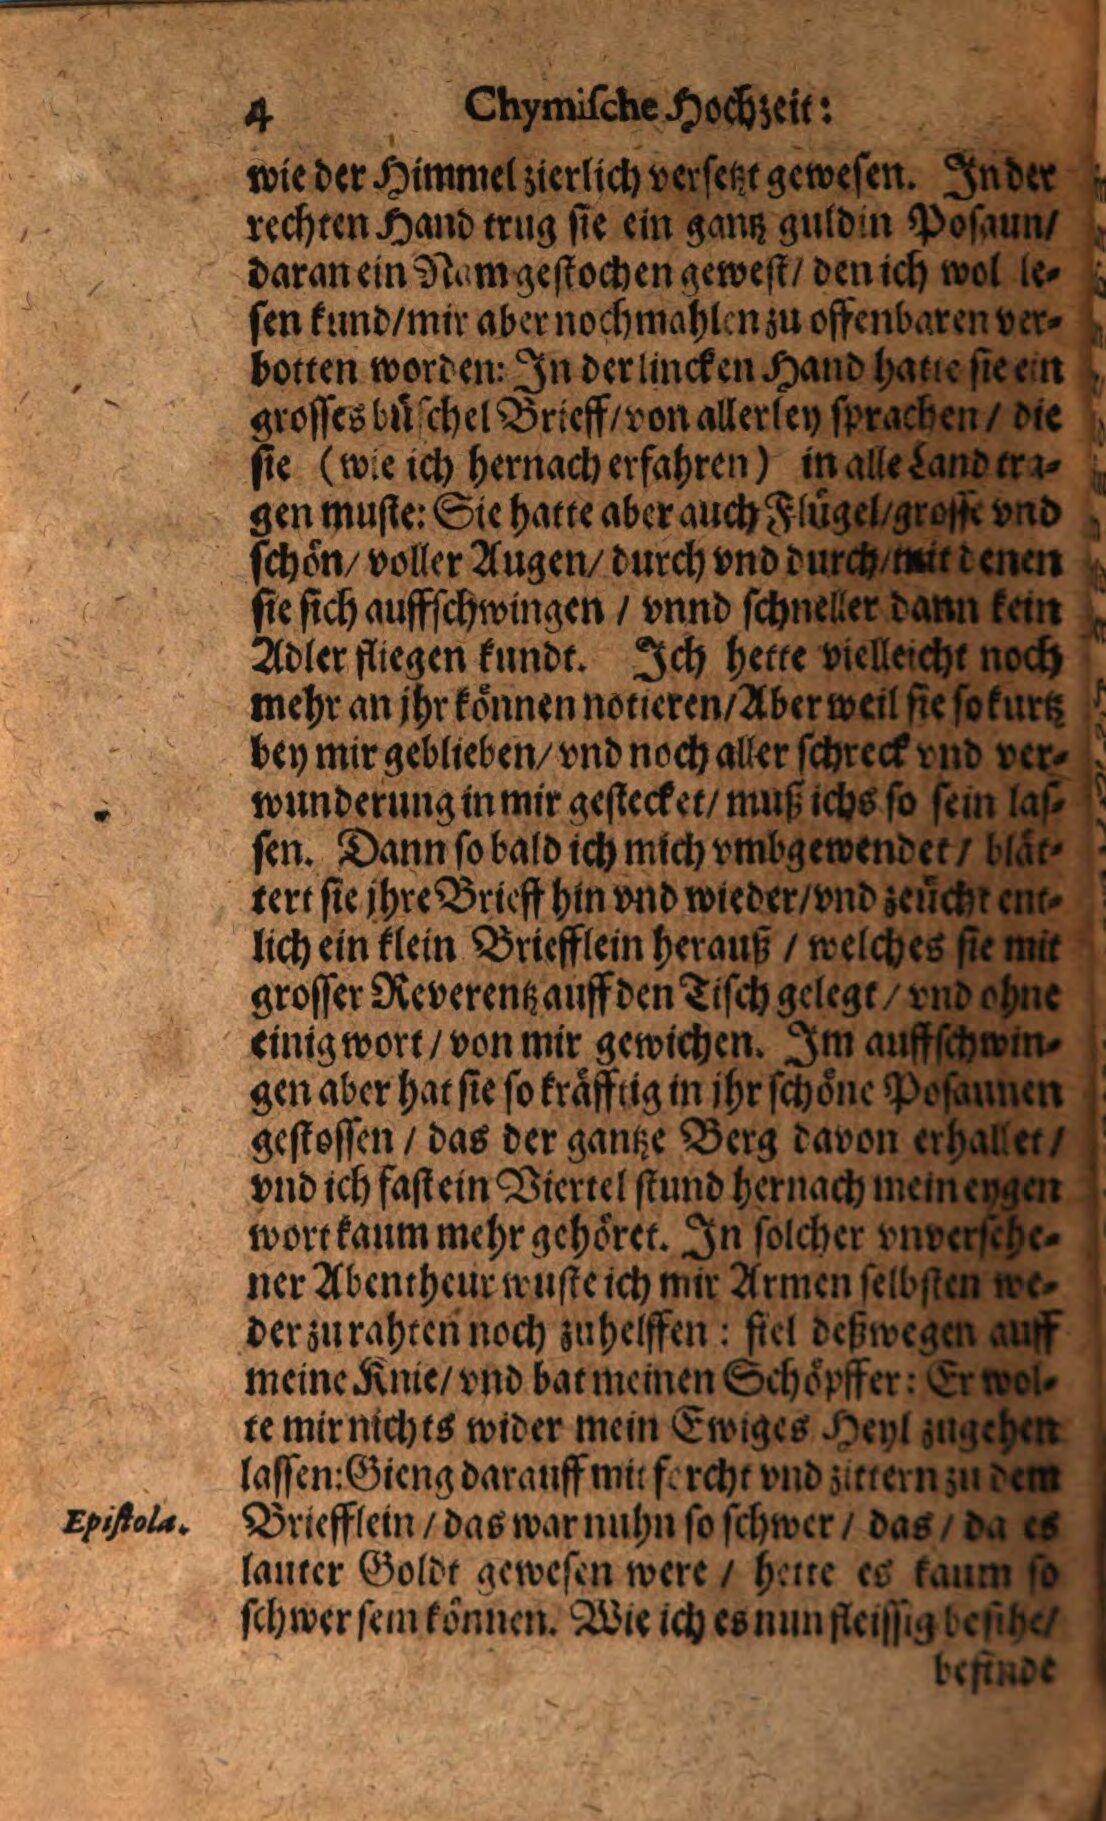 4 Chymiſche Hochzeit:
wie der Himmel zierlich verſetzt geweſen. In der
rechten Hand trug ſie ein gantz guldin Poſaun/
daran ein Nam geſtochen geweſt/ den ich wol le-
ſen kund/ mir aber nochmahlen zu offenbaren ver-
botten worden: In der lincken Hand hatte ſie ein
groſſes bůſchel Brieff/ von allerley ſprachen/ die
ſie (wie ich hernach erfahren) in alle Land tra-
gen muſte: Sie hatte aber auch Flůgel/ groſſe vnd
ſchoͤn/ voller Augen/ durch vnd durch/ mit denen
ſie ſich auffſchwingen / vnnd ſchneller dann kein
Adler fliegen kundt. Ich hette vielleicht noch
mehr an jhr koͤnnen notieren/ Aber weil ſie ſo kurtz
bey mir geblieben/ vnd noch aller ſchreck vnd ver-
wunderung in mir geſtecket/ muß ichs ſo ſein laſ-
ſen. Dann ſo bald ich mich vmbgewendet/ blaͤt-
tert ſie jhre Brieff hin vnd wieder/ vnd zeůcht ent-
lich ein klein Briefflein herauß / welches ſie mit
groſſer Reverentz auff den Tiſch gelegt/ vnd ohne
einig wort/ von mir gewichen. Im auffſchwin-
gen aber hat ſie ſo kraͤfftig in jhr ſchoͤne Poſaunen
geſtoſſen / das der gantze Berg davon erhallet/
vnd ich faſt ein Viertel ſtund hernach mein eygen
wort kaum mehr gehoͤret. In ſolcher vnverſehe-
ner Abentheur wuſte ich mir Armen ſelbſten we-
der zu rahten noch zuhelffen: fiel deßwegen auff
meine Knie/ vnd bat meinen Schoͤpffer: Er wol-
te mir nichts wider mein Ewiges Heyl zugehen
laſſen: Gieng darauff mit forcht vnd zittern zu dem
Epiſtola.
Briefflein / das war nuhn ſo ſchwer/ das/ da es
lauter Goldt geweſen were / hette es kaum ſo
ſchwer ſein koͤnnen. Wie ich es nun fleiſſig beſihe/
befinde